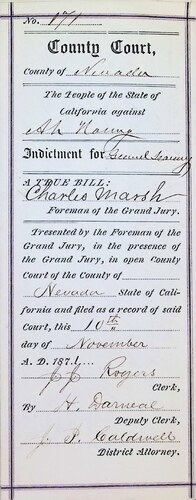 No. 171
County Court,
County of Nevada
The People of the State of
California against
Ah
Indictment for Larceny
A TRUE BILL:
Charles Marsh
Foreman of the Grand Jury.
Presented by the Foreman of the
Grand Jury, in the presence of
the Grand Jury, in open County
Court of the County of
Nevada State of Cali-
fornia and filed as a record of said
Court, this 10th
day of November
A. D. 1871.
Rogers
Clerk,
By H. Darneal
Deputy Clerk,
J. P. Caldwell
District Attorney.